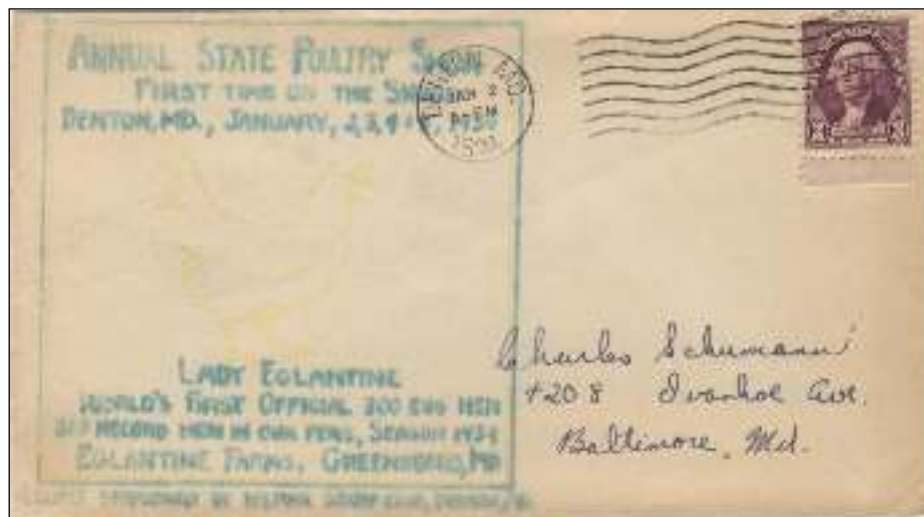 ANNUAL STATE POULTRY SHOW
FIRST TIME ON THE SHORE
DENTON, MD., JANUARY, 2, 3, 4
JAN 2
MD.
3 3
LADY EGLANTINE
WORLD'S FIRST OFFICIAL 300 EGG HEN
RECORD HEN IN OUR PENS, SEASON 1934
EGLANTINE FARMS, GREENSBORO, MD
Charles Schumann
4208 Ivanhoe Ave.
Baltimore, Md.